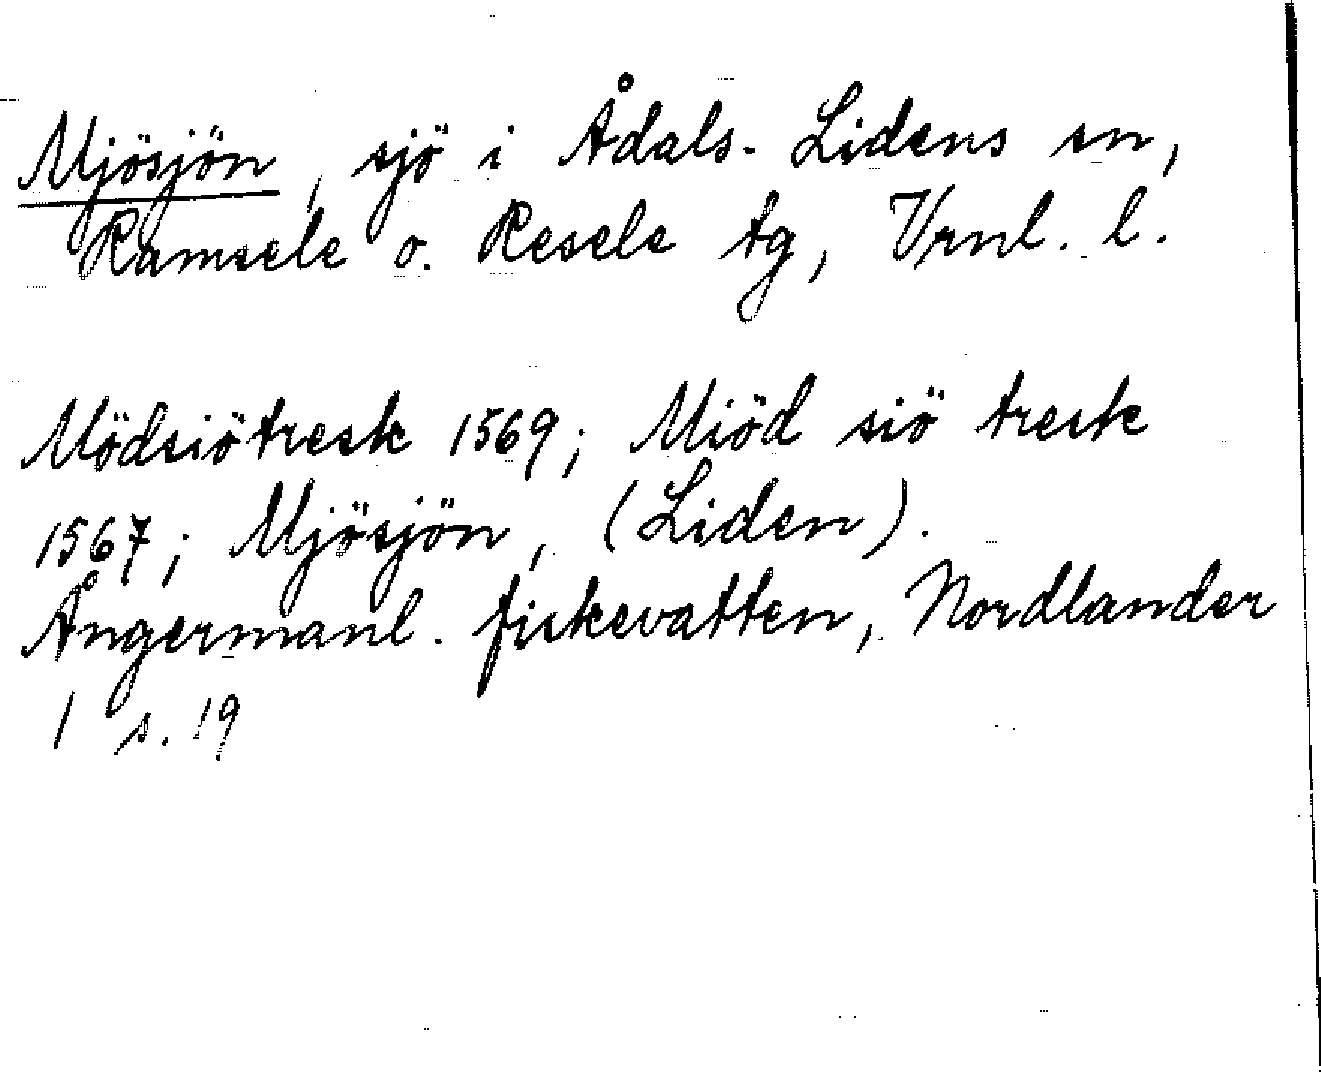 Mjösjön, sjö i Ådals-Lidens sn,
Ramsele o. Resele tg, Vrnl. l.
Mödsiötresk 1569; Miöd siö tresk
1567; Mjösjön, (Liden).
Ångermanl. fiskevatten, Nordlander
1 s. 19